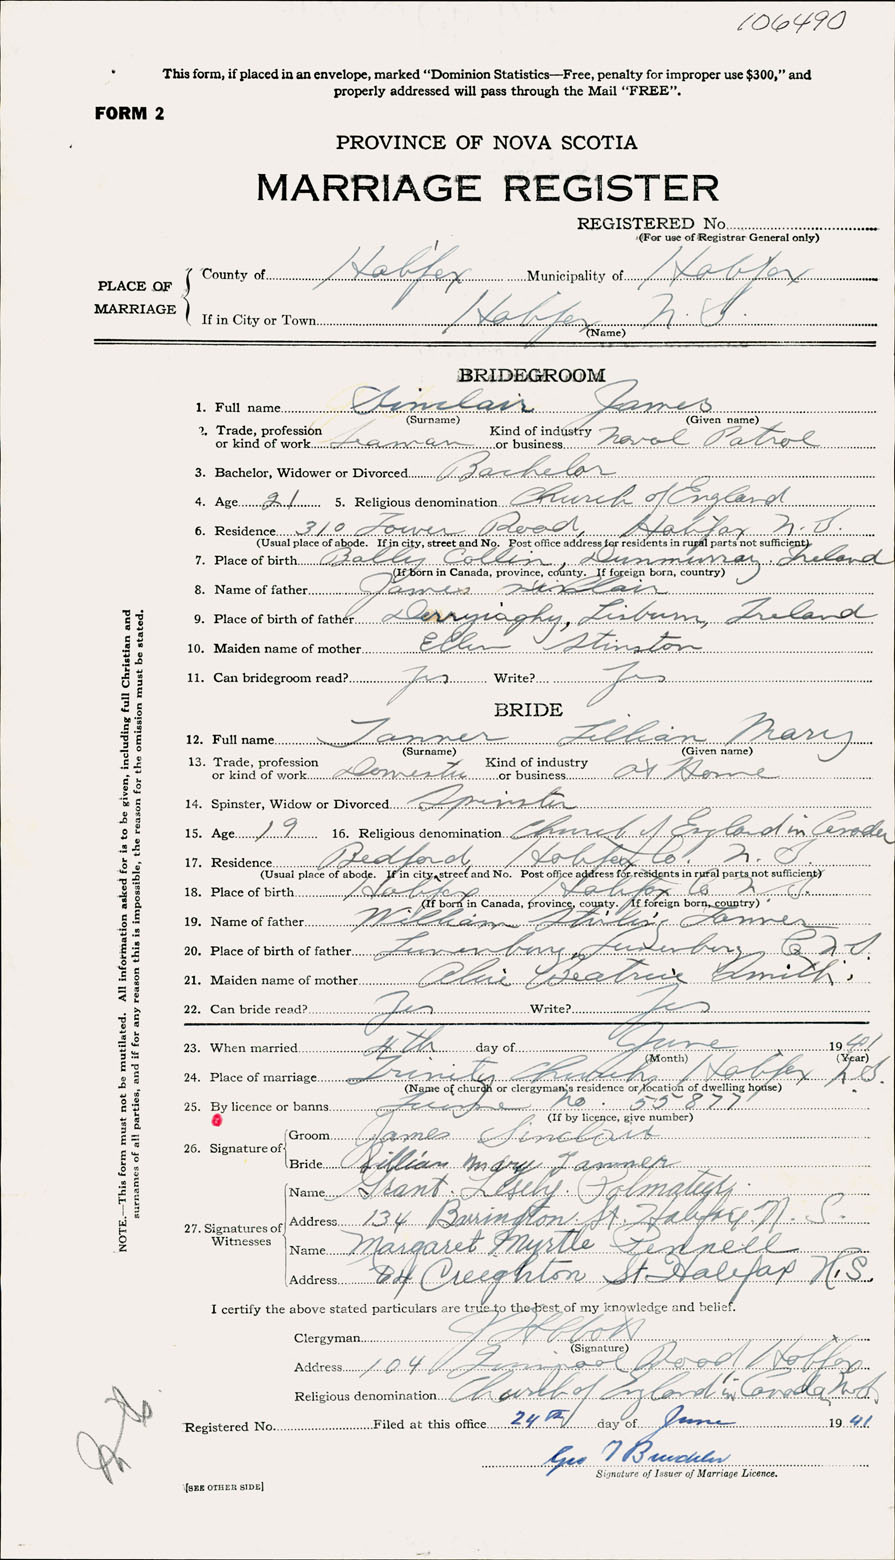 106490
This form, if placed in an envelope, marked “Dominion Statistics—Free, penalty for improper use $300,” and
properly addressed will pass through the Mail “FREE”.
FORM 2
PROVINCE OF NOVA SCOTIA
MARRIAGE REGISTER
REGISTERED No.
(For use of Registrar General only)
PLACE OF MARRIAGE
County of Halifax Municipality of Halifax
If in City or Town Halifax N. S.
(Name)
BRIDEGROOM
1. Full name Sinclair James
(Surname) (Given name)
2. Trade, profession or kind of work Seaman Kind of industry or business Naval Patrol
3. Bachelor, Widower or Divorced Bachelor
4. Age 21 5. Religious denomination Church of England
6. Residence 310 Tower Road, Halifax N. S.
(Usual place of abode. If in city, street and No. Post office address for residents in rural parts not sufficient)
7. Place of birth Bally Collin, Dunmurray Ireland
(If born in Canada, province, county. If foreign born, country)
8. Name of father James Sinclair
9. Place of birth of father Derryiaghy, Lisburn, Ireland
10. Maiden name of mother Ellen Stinston
11. Can bridegroom read? Yes Write? Yes
BRIDE
12. Full name Tanner Lillian Mary
(Surname) (Given name)
13. Trade, profession or kind of work Domestic Kind of industry or business at Home
14. Spinster, Widow or Divorced Spinster
15. Age 19 16. Religious denomination Church of England in Canada
17. Residence Bedford, Halifax Co. N. S.
(Usual place of abode. If in city, street and No. Post office address for residents in rural parts not sufficient)
18. Place of birth Halifax Halifax Co N. S.
(If born in Canada, province, county. If foreign born, country)
19. Name of father William Stirling Tanner
20. Place of birth of father Lunenburg, Lunenburg Co N.S.
21. Maiden name of mother Alice Beatrice Smith.
22. Can bride read? Yes Write? Yes
23. When married 4th day of June 1941
(Month) (Year)
24. Place of marriage Trinity Church, Halifax N.S.
(Name of church or clergyman's residence or location of dwelling house)
25. By licence or banns no. 55877
(If by licence, give number)
26. Signature of
Groom James Sinclair
Bride Lillian Mary Tanner
27. Signatures of Witnesses
Name Grant Lesely
Address 134 Barrington St. Halifax, N. S.
Name Margaret Myrtle Pennell
Address 64 Creighton St Halifax N.S.
I certify the above stated particulars are true to the best of my knowledge and belief.
Clergyman
(Signature)
Address 104 Road Halifax
Religious denomination Church of England in Canada
Registered No. Filed at this office 24th day of June 1941
Geo
Signature of Issuer of Marriage Licence.
[SEE OTHER SIDE]
NOTE.—This form must not be mutilated. All information asked for is to be given, including full Christian and
surnames of all parties, and if for any reason this is impossible, the reason for the omission must be stated.